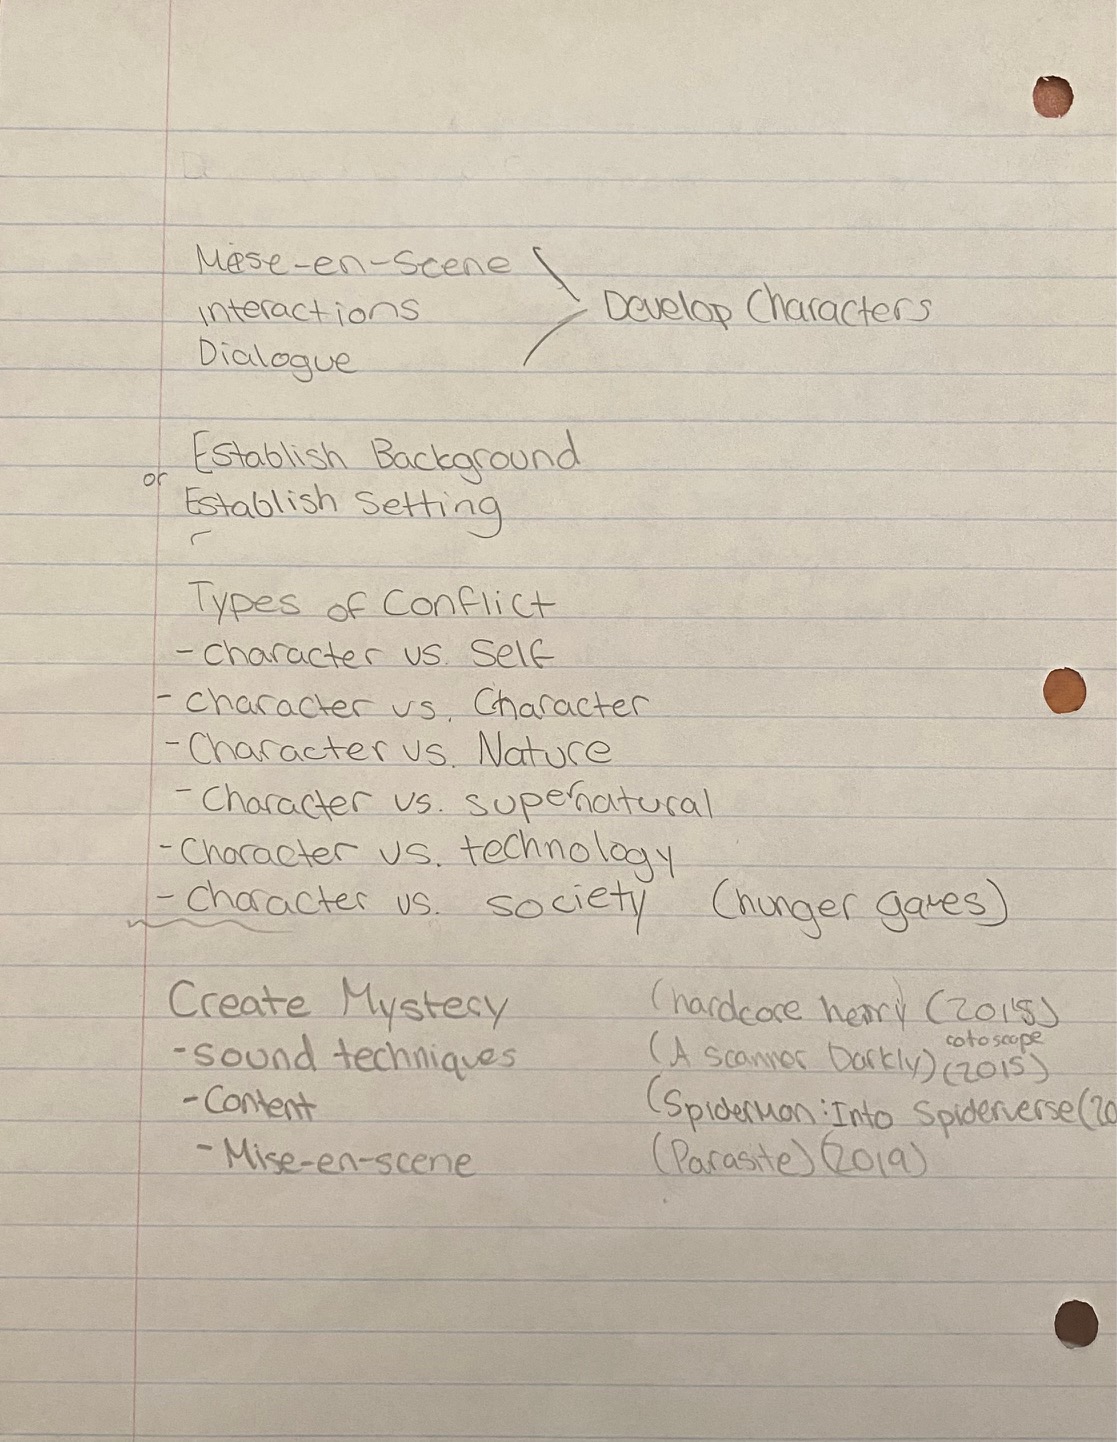 Mise-en-scene
interactions
Dialogue
Develop Characters
Establish Background
or
Establish Setting
Types of Conflict
- character vs. Self
- character vs. Character
- Character vs. Nature
- Character vs. supernatural
- Character vs. technology
- Character vs. society (hunger games)
Create Mystery (hardcore henry (2015)
- sound techniques (A scanner Darkly) rotoscope (2015)
- Content (Spiderman: Into Spiderverse (20
- Mise-en-scene (Parasite) (2019)